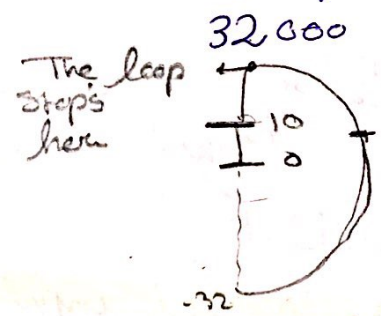 32000
The loop
stops
here
10
0
-32